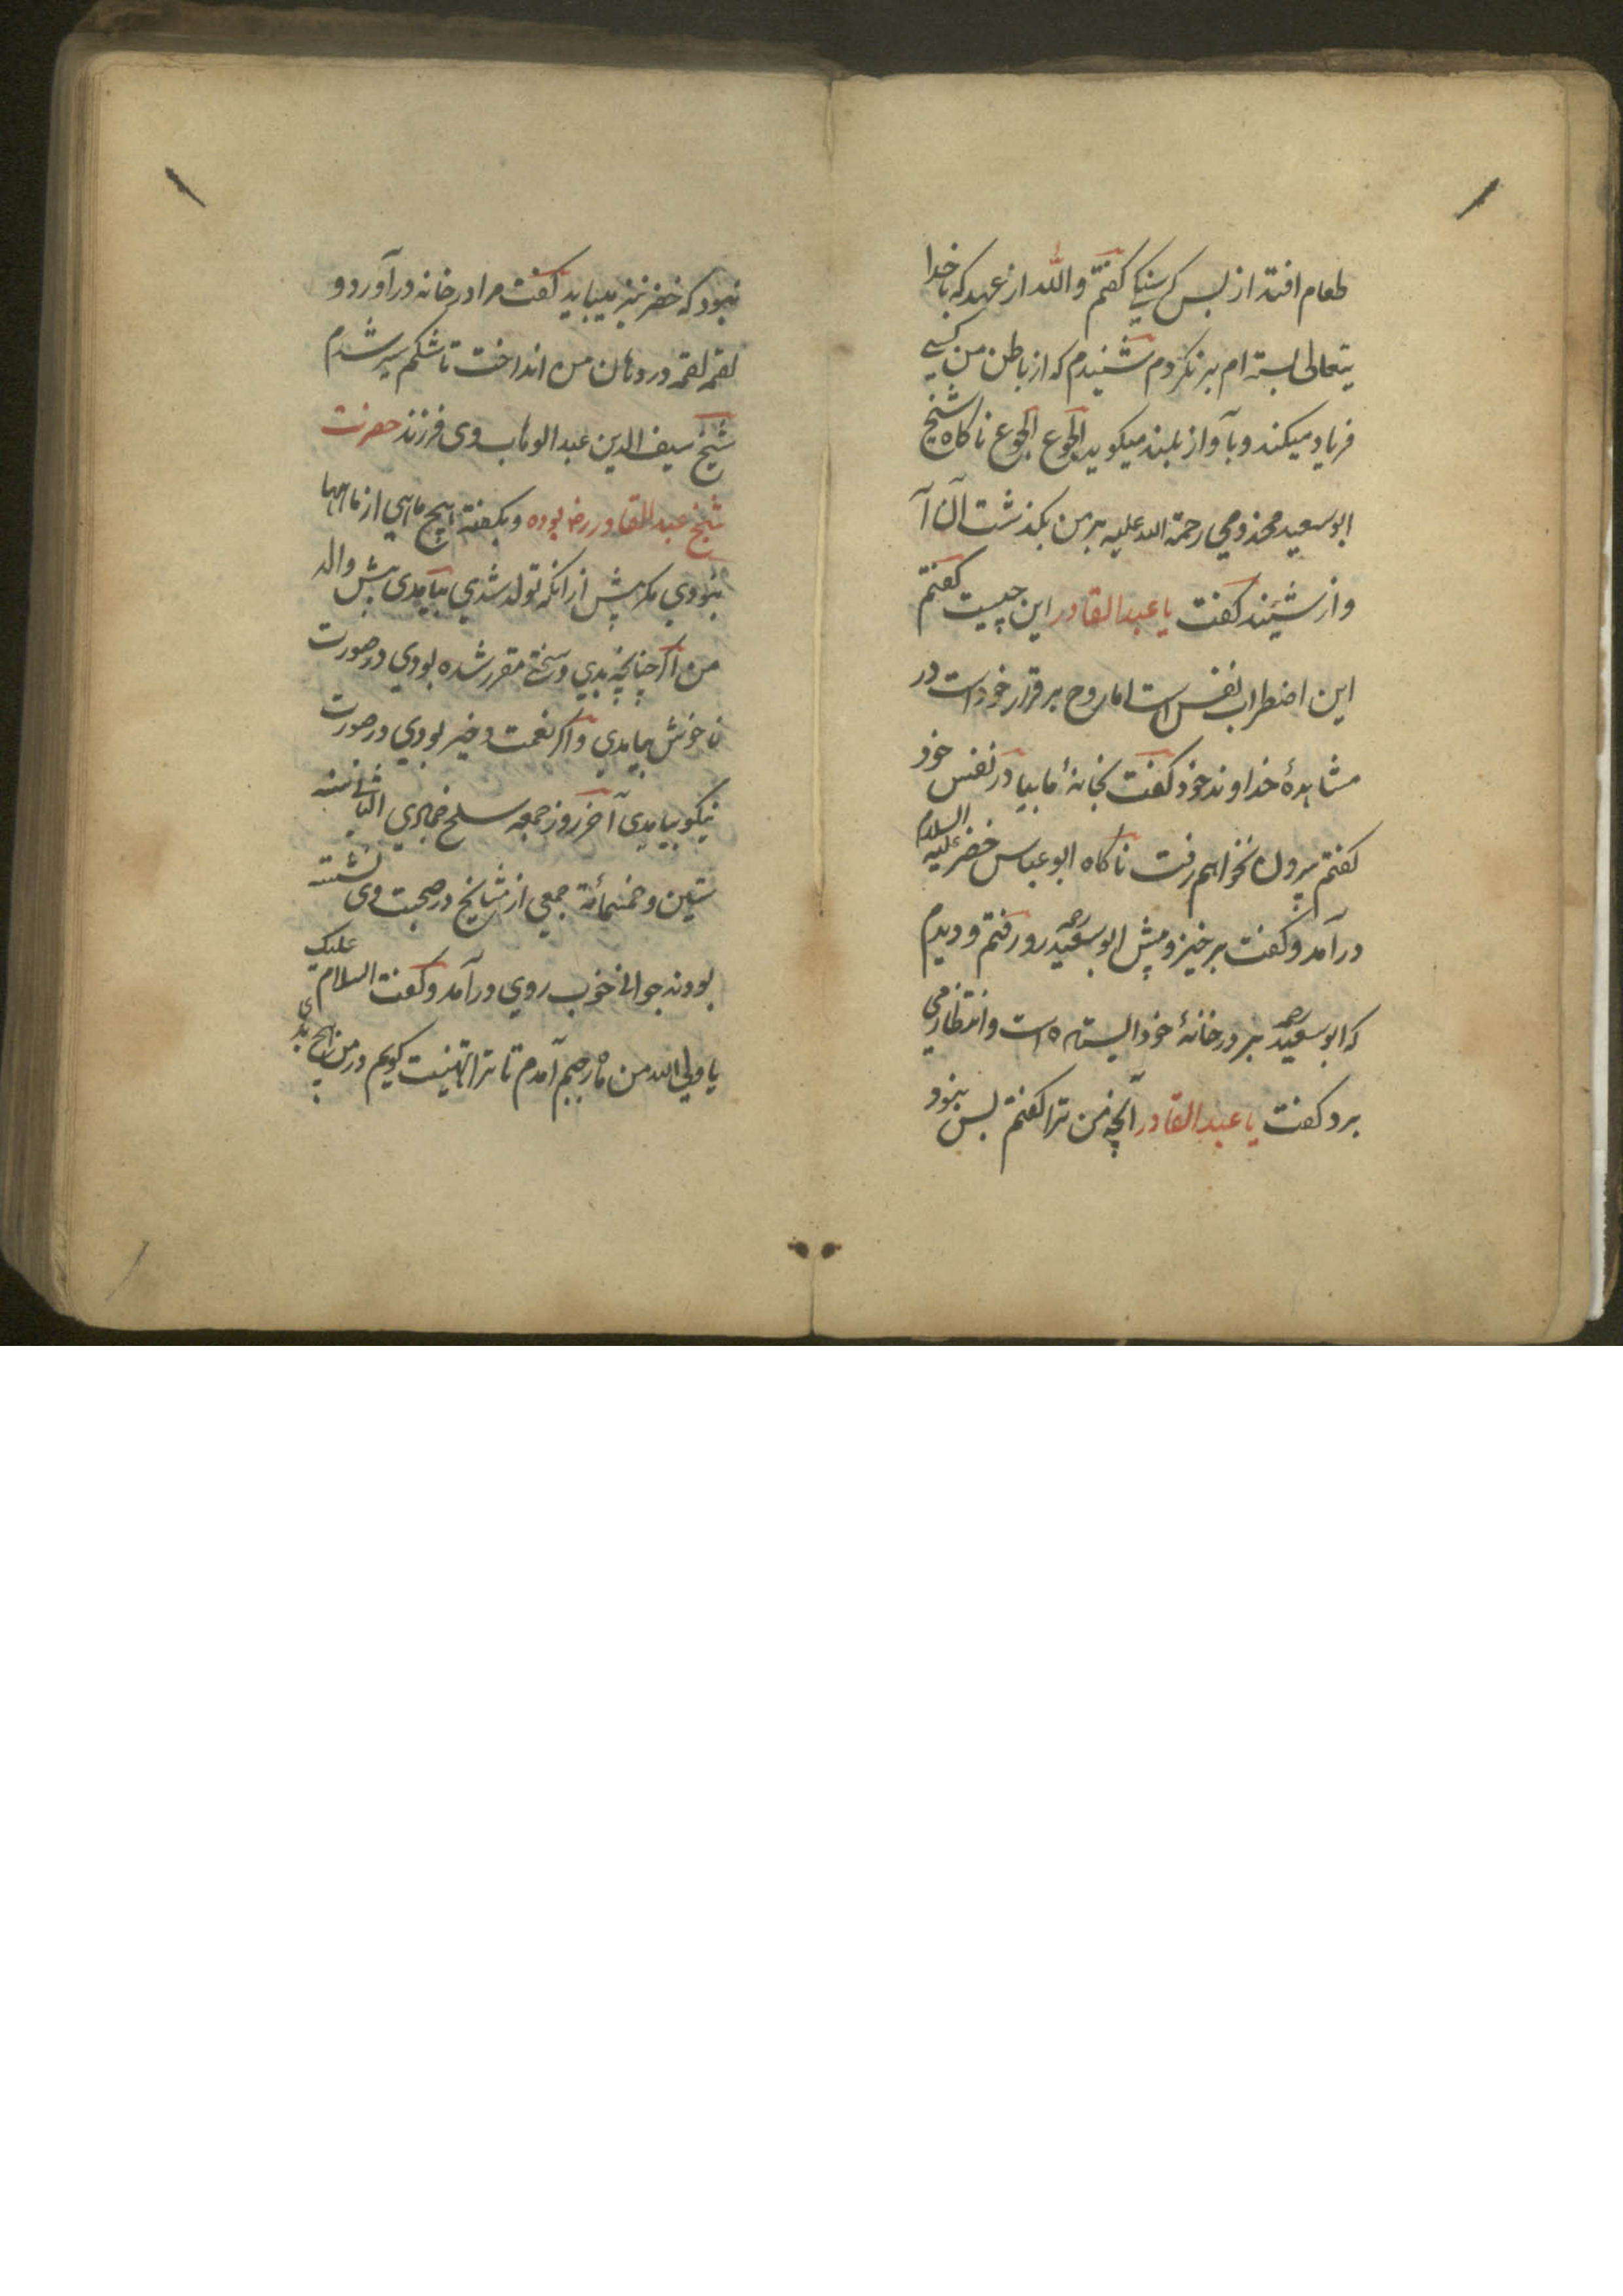 طعام افتد از بس گرسنگی گفتم والله از عهد که با خدا
یتعالی بسته ام بر نکردم شنیدم که از باطن من کسی
فریاد میکند و بآواز بلند میکوید الجوع الجوع ناکاه شیخ
ابو سعید مخذومی رحمة الله علیه بر من بکذشت آن آ
واز شنید کفت یا عبد القادر این چیست کفتم
این اضطراب نفس است اما روح بر قرار خود است در
مشاهدهٔ خداوند خود کفت بخانهٔ ما بیا در نفس خود
کفتم بیرون نخواهم رفت ناکاه ابو عباس خضر علیه السلام
در آمد و کفت برخیز و پیش ابو سعید رو رفتم و دیدم
که ابو سعید بر در خانهٔ خود ایستاده است و انتظار می
برد کفت یا عبد القادر آنچه من ترا کفتم بس نبود
نبود که خضر نیز میباید کفت مرا در خانه در آورد و
لقمه لقمه در دهان من انداخت تا شکم سیر شدم
شیخ سیف الدین عبد الوهاب وی فرزند حضرت
شیخ عبد القادر رض بوده و بکفته هیچ ماهی از ماهها
نبودی مکر پیش از آنکه نو شدی بیامدی پیش والد
من اکر چنانچه بدی و سختی مقرر شده بودی در صورت
ناخوش بیامدی و اکر نعمت و خیر بودی در صورت
نیکو بیامدی آخر روز جمعه سلخ جمادی الثانی سنه
ستین و خمسمائة جمعی از مشایخ در صحبت وی نشسته
بودند جوانی خوب روی در آمد و کفت السلام علیک
یا ولی الله من ماه رجبم آمدم تا ترا تهنیت کویم در من هیچ بدی